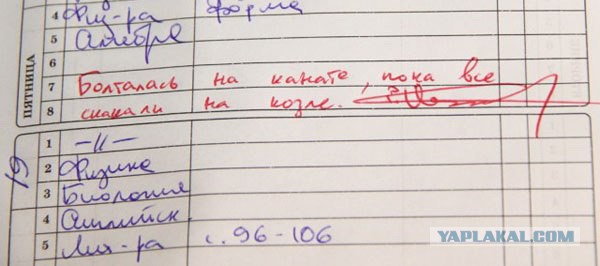 4 Физ-ра форма
5 Алгебра
6
ПЯТНИЦА
7 Болталась на канате, пока все
8 скакали на козле.
1 -//-
2 Физика
3 Биология
4 Английск.
5 Лит-ра с. 96-106
YAPLAKAL.COM